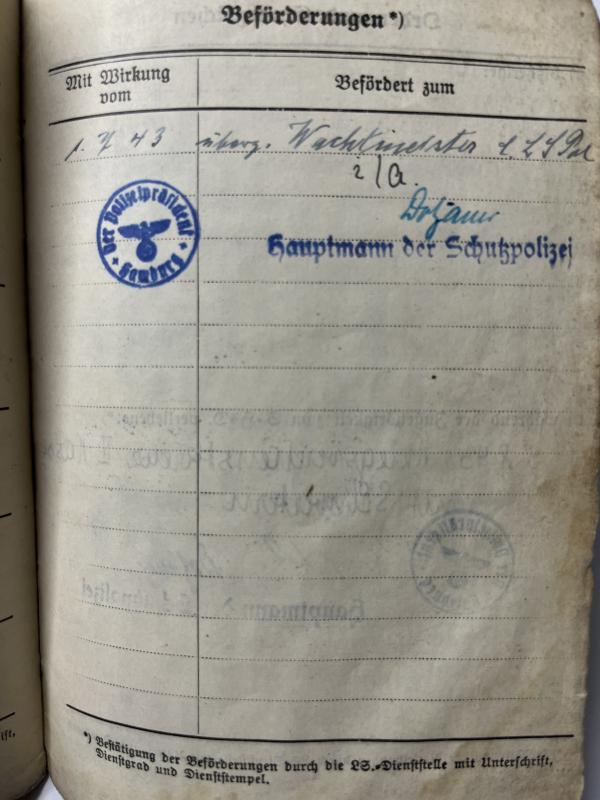 Beförderungen *)
Mit Wirkung
vom
Befördert zum
1. 7 43 überg. Wachtmeister d. L S Pol
i/a.
Hauptmann der Schutzpolizei
Der Polizeipräsident
Hamburg
*) Bestätigung der Beförderungen durch die LS.-Dienststelle mit Unterschrift,
Dienstgrad und Dienststempel.